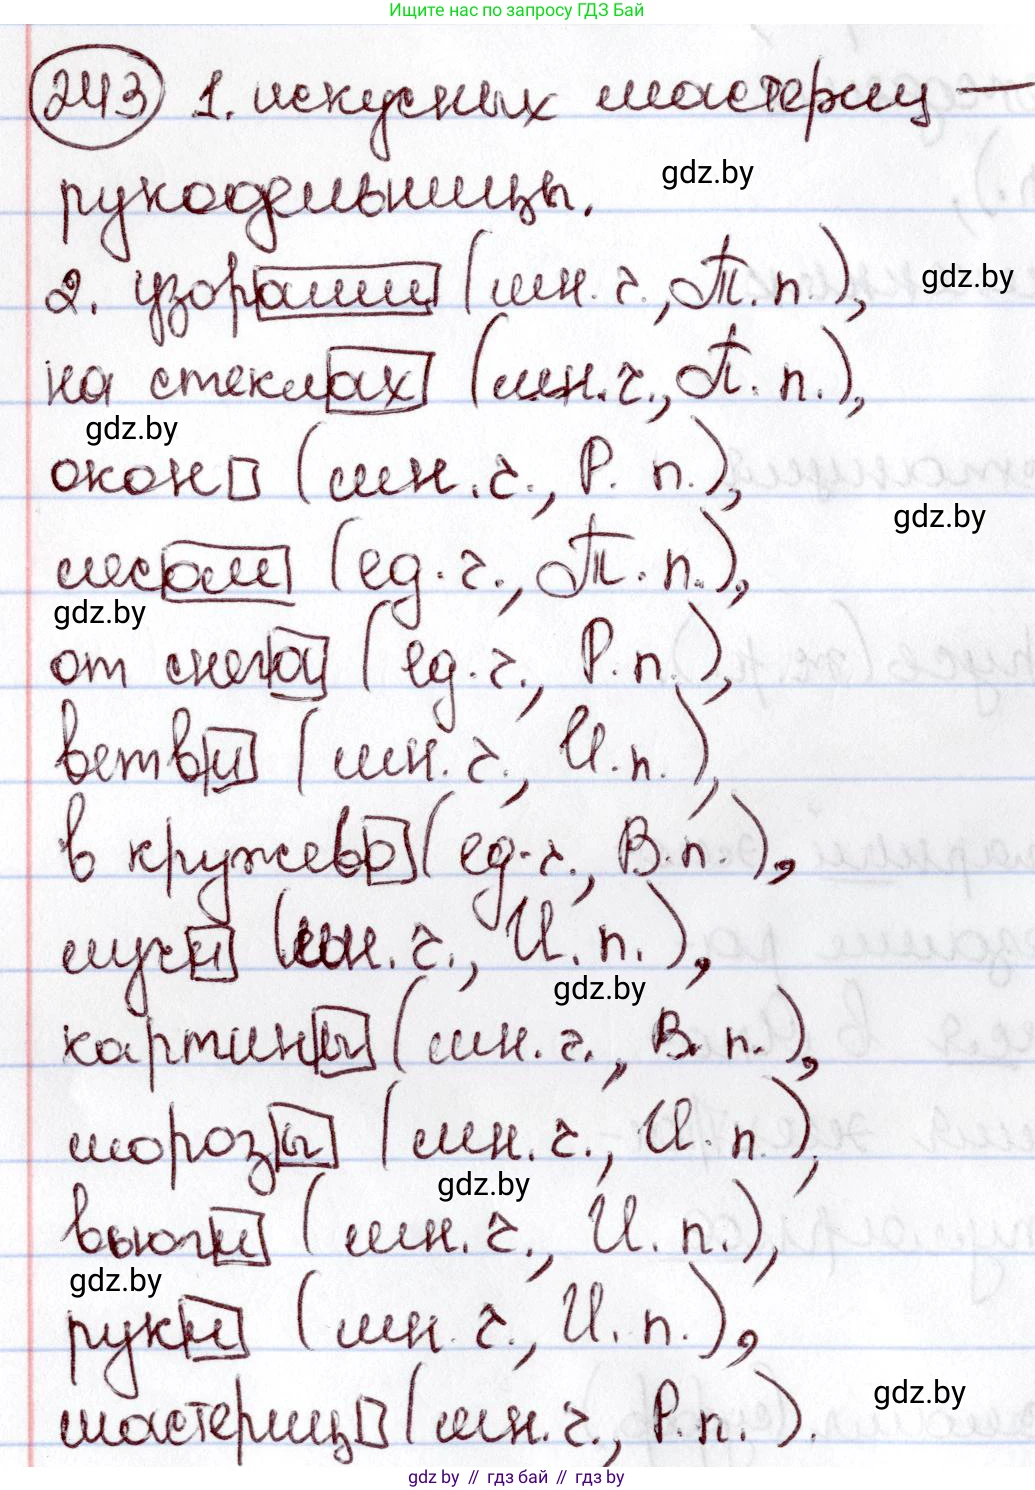 Ищите нас по запросу ГДЗ Бай
243 1. искусных мастериц —
gdz.by
рукодельницы.
2. узорами (мн. ч., Т. п.),
gdz.by
на стеклах (мн. ч., П. п.),
gdz.by
окон (мн. ч., Р. п.),
gdz.by
лесом (ед. ч., Т. п.),
gdz.by
от снега (ед. ч., Р. п.),
ветви (мн. ч., И. п.),
gdz.by
в кружево (ед. ч., В. п.),
лучи (мн. ч., И. п.),
gdz.by
картины (мн. ч., В. п.),
морозы (мн. ч., И. п.),
gdz.by
вьюги (мн. ч., И. п.),
gdz.by
руки (мн. ч., И. п.),
gdz.by
мастериц (мн. ч., Р. п.).
gdz.by // гдз бай // gdz by